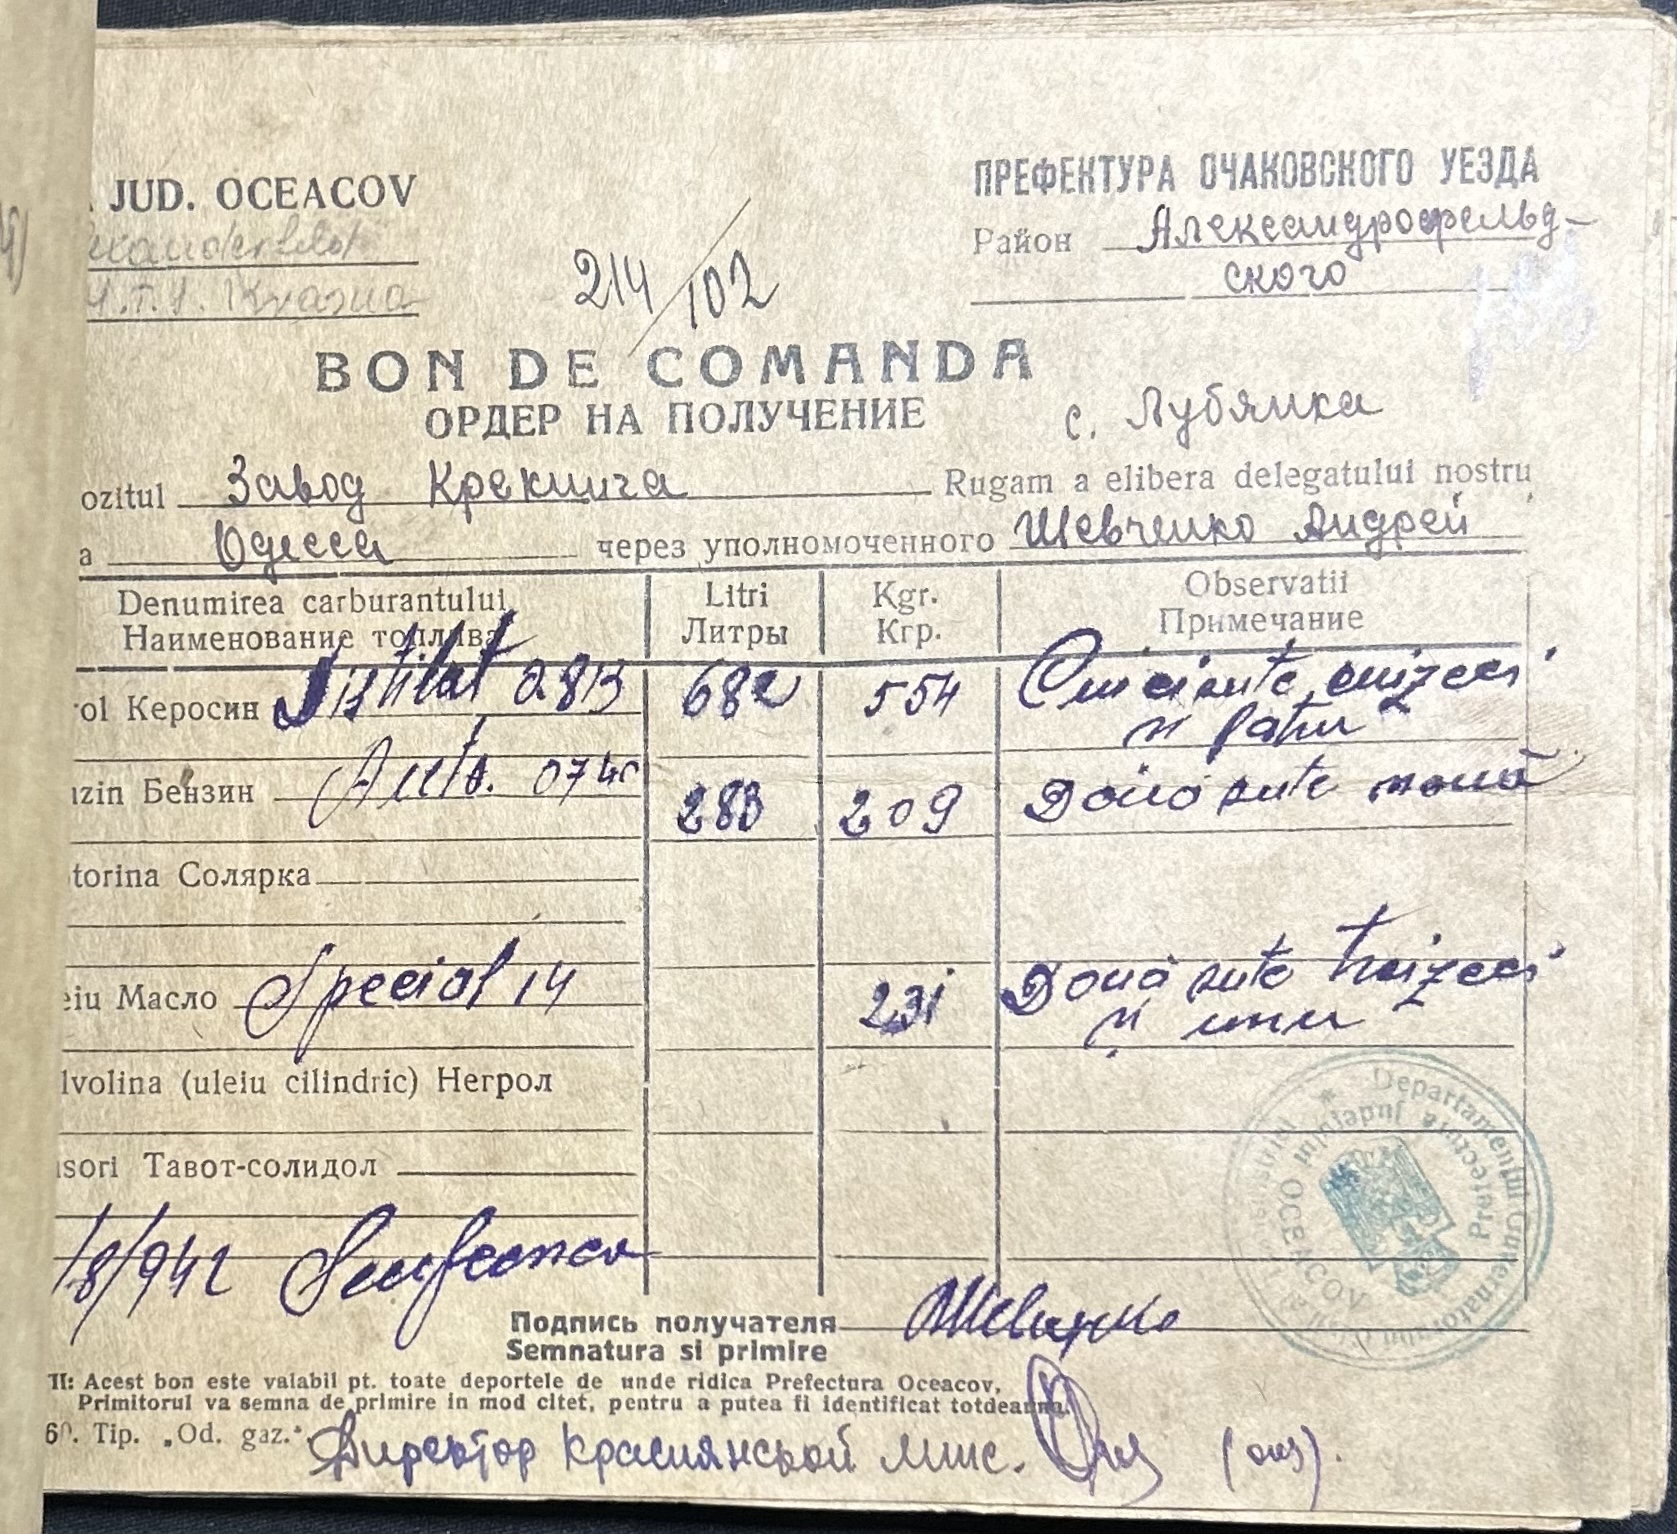 JUD. OCEACOV
ПРЕФЕКТУРА ОЧАКОВСКОГО УЕЗДА
Район Александрофельд-
ского
214/102
BON DE COMANDA
ОРДЕР НА ПОЛУЧЕНИЕ
с. Лубянка
ozitul Завод Крекинга Rugam a elibera delegatului nostru
a Одесса через уполномоченного Шевченко Андрей
Denumirea carburantului Litri Kgr. Observatii
Наименование топлива Литры Кгр. Примечание
rol Керосин Distilat 0813 682 554 Cinci sute cinizeci
si patru
nzin Бензин Auto. 0740 283 209 Două sute nouă
torina Солярка
eiu Масло Special 14 231 Două sute treizeci
și unu
lvolina (uleiu cilindric) Негрол
isori Тавот-солидол
/8/942
Подпись получателя Шевченко
Semnatura si primire
II: Acest bon este valabil pt. toate deportele de unde ridica Prefectura Oceacov,
Primitorul va semna de primire in mod citet, pentru a putea fi identificat totdeauna.
60. Tip. „Od. gaz.“
Директор Краснянской мтс.
Departamentul Guvernatorului
Prefectura Judetului
OCEACOV